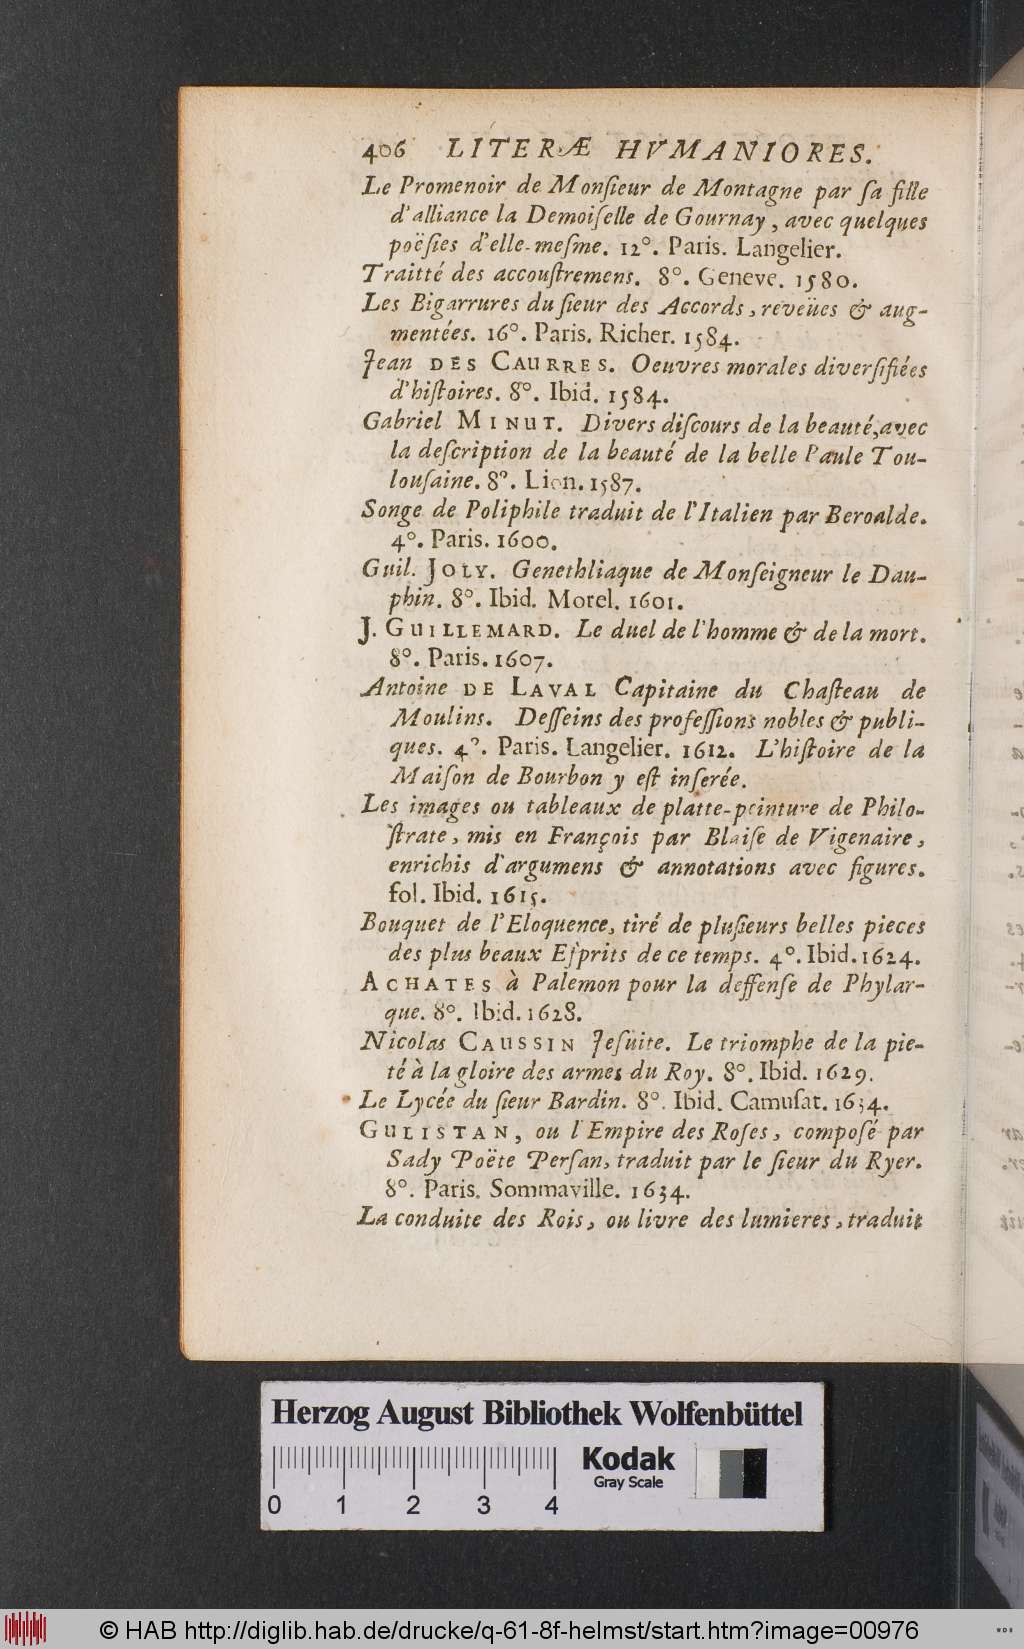 406 LITERÆ HVMANIORES.
Le Promenoir de Monſieur de Montagne par ſa fille
d'alliance la Demoiſelle de Gournay, avec quelques
poëſies d'elle-meſme. 12°. Paris. Langelier.
Traitté des accouſtremens. 8°. Geneve. 1580.
Les Bigarrures du ſieur des Accords, reveües & aug-
mentées. 16°. Paris. Richer. 1584.
Jean DES CAURRES. Oeuvres morales diverſifiées
d'hiſtoires. 8°. Ibid. 1584.
Gabriel MINUT. Divers diſcours de la beauté, avec
la deſcription de la beauté de la belle Paule Tou-
louſaine. 8°. Lion. 1587.
Songe de Poliphile traduit de l'Italien par Beroalde.
4°. Paris. 1600.
Guil. JOLY. Genethliaque de Monſeigneur le Dau-
phin. 8°. Ibid. Morel. 1601.
J. GUILLEMARD. Le duel de l'homme & de la mort.
8°. Paris. 1607.
Antoine DE LAVAL Capitaine du Chaſteau de
Moulins. Deſſeins des profeſſions nobles & publi-
ques. 4°. Paris. Langelier. 1612. L'hiſtoire de la
Maiſon de Bourbon y eſt inſerée.
Les images ou tableaux de platte-peinture de Philo-
ſtrate, mis en François par Blaiſe de Vigenaire,
enrichis d'argumens & annotations avec figures.
fol. Ibid. 1615.
Bouquet de l'Eloquence, tiré de pluſieurs belles pieces
des plus beaux Eſprits de ce temps. 4°. Ibid. 1624.
ACHATES à Palemon pour la deffenſe de Phylar-
que. 8°. Ibid. 1628.
Nicolas CAUSSIN Jeſuite. Le triomphe de la pie-
té à la gloire des armes du Roy. 8°. Ibid. 1629.
Le Lycée du ſieur Bardin. 8°. Ibid. Camuſat. 1634.
GULISTAN, ou l'Empire des Roſes, compoſé par
Sady Poëte Perſan, traduit par le ſieur du Ryer.
8°. Paris. Sommaville. 1634.
La conduite des Rois, ou livre des lumieres, traduit
Herzog August Bibliothek Wolfenbüttel
Kodak
Gray Scale
0 1 2 3 4
© HAB http://diglib.hab.de/drucke/q-61-8f-helmst/start.htm?image=00976